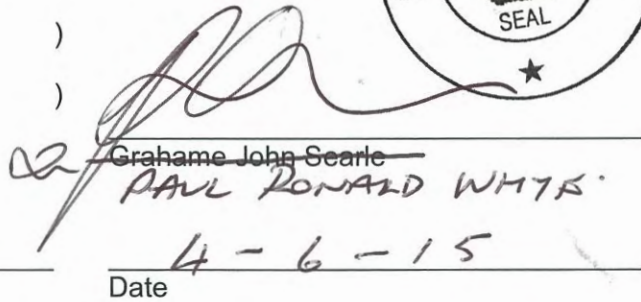 SEAL
)
)
Grahame John Searle
PAUL RONALD WHYE
4 - 6 - 15
Date